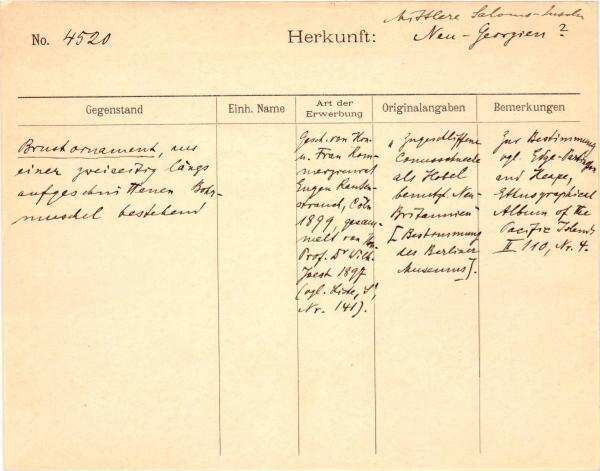 No. 4520
Herkunft:
Mittlere Salomo-Inseln
Neu-Georgien?
Gegenstand
Einh. Name
Art der Erwerbung
Originalangaben
Bemerkungen
Brustornament, aus
einer zweiseitig längs
aufgeschnittenen Bohr-
muschel bestehend
Gesch. von Herrn
u. Frau Kom-
merzienrat
Eugen Rauten-
strauch, Cöln
1899, gesam-
melt von
Prof. Dr Wilh.
Joest 1897
(vgl. Liste,
Nr. 141).
"Zugeschliffene
Conusschnecke
als Hobel
benutzt Neu-
Britannien"
[Bestimmung
des Berliner
Museums].
Zur Bestimmung
vgl. Edge-Partington
and Heape,
Ethnographical
Album of the
Pacific Islands
II 110, Nr. 4.